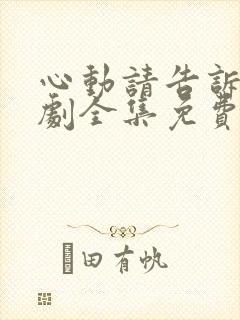 心動請告訴
劇全集免費
田有帆